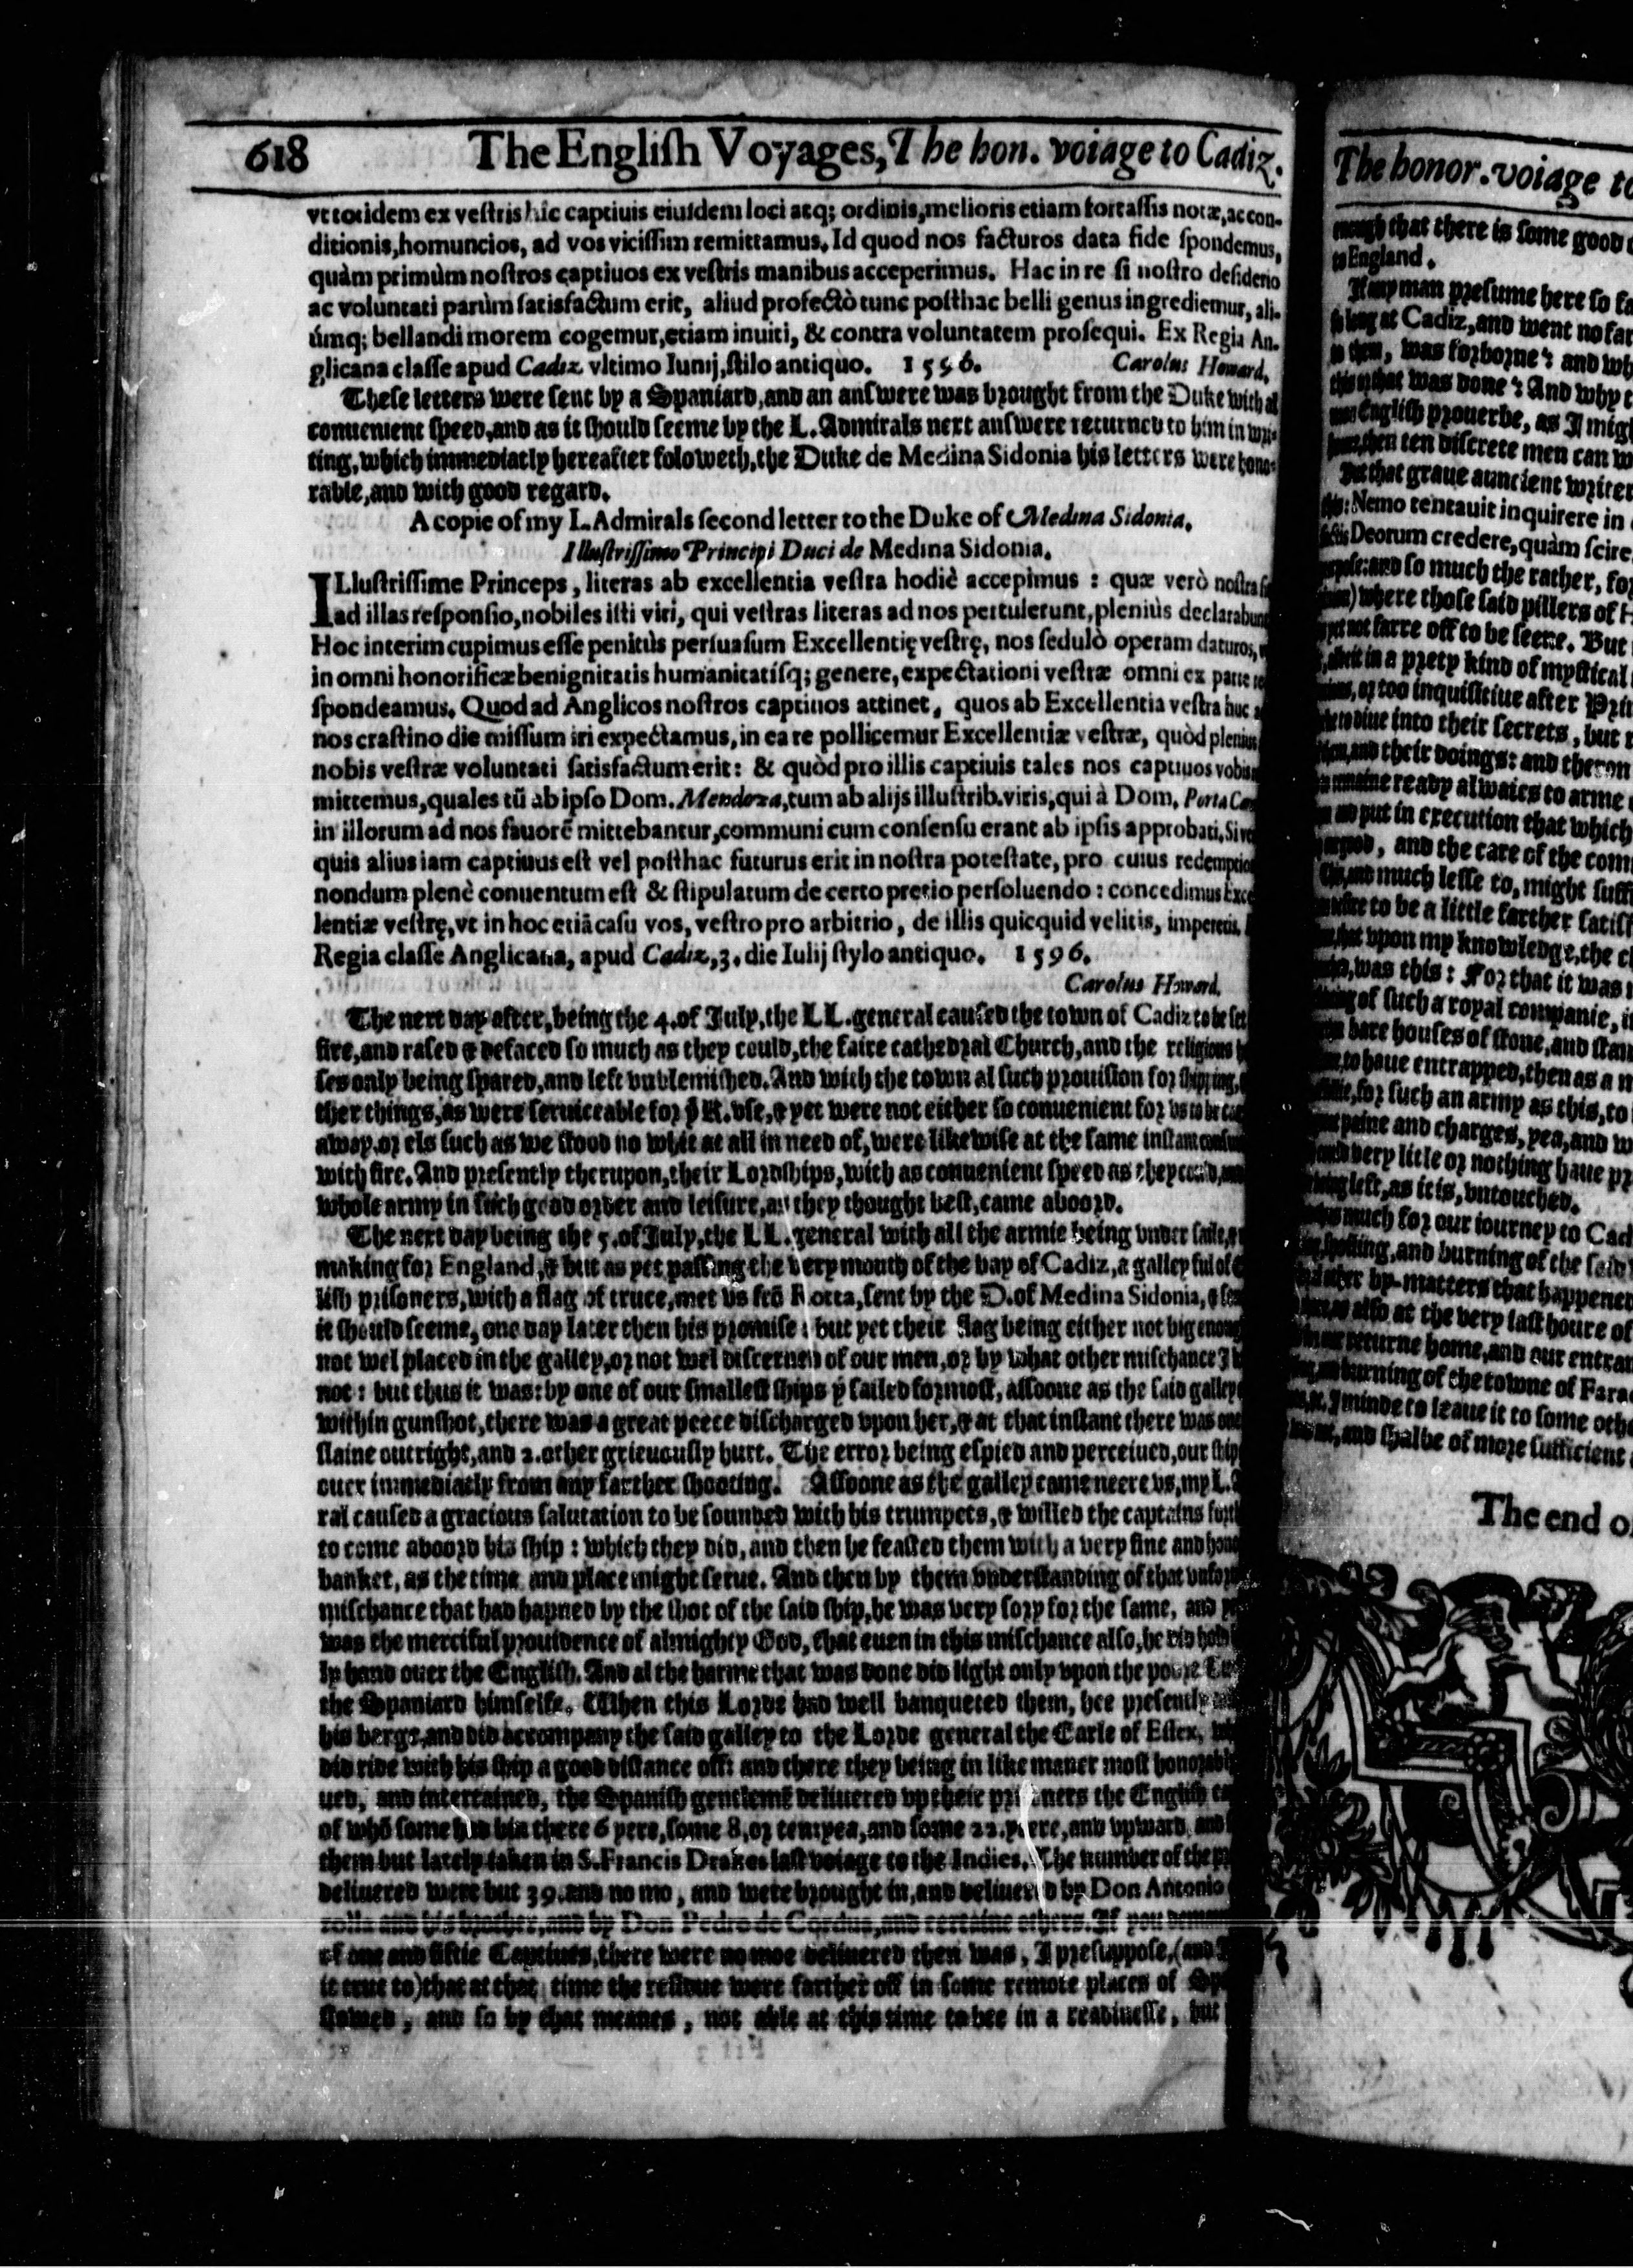 618 The Engliſh Voyages, The hon. voiage to Cadiz.
vt totidem ex veſtris hic captiuis eiuſdem loci atq; ordinis, melioris etiam fortaſſis notæ, ac con-
ditionis, homuncios, ad vos viciſſim remittamus. Id quod nos facturos data fide ſpondemus,
quàm primùm noſtros captiuos ex veſtris manibus acceperimus. Hac in re ſi noſtro deſiderio
ac voluntati parùm ſatisfactum erit, aliud profectò tunc poſthac belli genus ingrediemur, ali-
úmq; bellandi morem cogemur, etiam inuiti, & contra voluntatem proſequi. Ex Regia An-
glicana claſſe apud Cadiz vltimo Iunij, ſtilo antiquo. 1596. Carolus Howard.
Theſe letters were ſent by a Spaniard, and an anſwere was brought from the Duke with al
conuenient ſpeed, and as it ſhould ſeeme by the L. Admirals next anſwere returned to him in wri-
ting, which immediatly hereafter foloweth, the Duke de Medina Sidonia his letters were hono-
rable, and with good regard.
A copie of my L. Admirals ſecond letter to the Duke of Medina Sidonia.
Illuſtriſſimo Principi Duci de Medina Sidonia.
ILluſtriſſime Princeps, literas ab excellentia veſtra hodiè accepimus: quæ verò noſtra
ad illas reſponſio, nobiles iſti viri, qui veſtras literas ad nos pertulerunt, pleniùs declarabunt
Hoc interim cupimus eſſe penitùs perſuaſum Excellentię veſtrę, nos ſedulò operam daturos,
in omni honorificæ benignitatis humanitatíſq; genere, expectationi veſtræ omni ex parte
ſpondeamus. Quod ad Anglicos noſtros captiuos attinet, quos ab Excellentia veſtra huc
nos craſtino die miſſum iri expectamus, in ea re pollicemur Excellentiæ veſtræ, quòd plenius
nobis veſtræ voluntati ſatisfactum erit: & quòd pro illis captiuis tales nos captiuos vobis
mittemus, quales tū ab ipſo Dom. Mendoza, tum ab alijs illuſtrib. viris, qui à Dom. Porta
in illorum ad nos fauorē mittebantur, communi cum conſenſu erant ab ipſis approbati. Si
quis alius iam captiuus eſt vel poſthac futurus erit in noſtra poteſtate, pro cuius redemptio
nondum plenè conuentum eſt & ſtipulatum de certo precio perſoluendo: concedimus Exce
lentiæ veſtrę, vt in hoc etiā caſu vos, veſtro pro arbitrio, de illis quicquid velitis, imperetis.
Regia claſſe Anglicana, apud Cadiz, 3. die Iulij ſtylo antiquo. 1596.
Carolus Howard.
The next day after, being the 4. of July, the LL. general cauſed the town of Cadiz to be ſet
fire, and raſed & defaced ſo much as they could, the faire cathedral Church, and the religious
ſes only being ſpared, and left vnblemiſhed. And with the town al ſuch prouiſion for ſhipping,
ther things, as were ſeruiceable for ẙ K. vſe, & yet were not either ſo conuenient for vs to be
away, or els ſuch as we ſtood no whit at all in need of, were likewiſe at the ſame inſtant
with fire. And preſently therupon, their Lordſhips, with as conuenient ſpeed as they could,
whole army in ſuch good order and leiſure, as they thought beſt, came aboord.
The next day being the 5. of July, the LL. general with all the armie being vnder ſaile,
making for England, & but as yet paſſing the very mouth of the bay of Cadiz, a galley ful of
liſh priſoners, with a flag of truce, met vs frō Rotta, ſent by the D. of Medina Sidonia, &
it ſhould ſeeme, one day later then his promiſe: but yet their flag being either not big enoug
not wel placed in the galley, or not wel diſcerned of our men, or by what other miſchance I
not: but thus it was: by one of our ſmalleſt ſhips ẙ ſailed formoſt, aſſoone as the ſaid galley
within gunſhot, there was a great peece diſcharged vpon her, & at that inſtant there was one
ſlaine outright, and 2. other grieuouſly hurt. The error being eſpied and perceiued, our ſhip
ouer immediatly from any farther ſhooting. Aſſoone as the galley came neere vs, my L.
ral cauſed a gracious ſalutation to be ſounded with his trumpets, & willed the captains forth
to come aboord his ſhip: which they did, and then he feaſted them with a very fine and hono
banket, as the time and place might ſerue. And then by them vnderſtanding of that vnfor
miſchance that had hapned by the ſhot of the ſaid ſhip, he was very ſory for the ſame, and
was the merciful prouidence of almighty God, that euen in this miſchance alſo, he did hold
ly hand ouer the Engliſh. And al the harme that was done did light only vpon the poore
the Spaniard himſelfe. When this Lorde had well banqueted them, hee preſently
his barge, and did accompany the ſaid galley to the Lorde general the Earle of Eſſex,
did ride with his ſhip a good diſtance off: and there they being in like maner moſt honorabl
ued, and intertained, the Spaniſh gentlemē deliuered vp their priſoners the Engliſh
of whō ſome had bin there 6 yere, ſome 8. or ten yea, and ſome 22. yeere, and vpward, and
them but lately taken in S. Francis Drakes laſt voiage to the Indies. The number of the
deliuered were but 39. and no mo, and were brought in, and deliuered by Don Antonio
rolla and his brother, and by Don Pedro de Cordua, and certaine others. If you
of one and fiftie Captiues, there were no moe deliuered then was, I preſuppoſe, (and
it true to) that at that time the reſidue were farther off in ſome remote places of
ſtowed, and ſo by that meanes, not able at this time to bee in a readineſſe, but
The honor. voiage to
that there is ſome good
England.
If any man preſume here ſo
at Cadiz, and went no far
then, was forborne: and
that was done: And why
Engliſh prouerbe, as I migh
then ten diſcrete men can
that graue auncient writer
Nemo tentauit inquirere in
Deorum credere, quàm ſcire
and ſo much the rather, for
where thoſe ſaid pillers of
not farre off to be ſeene. But
in a prety kind of myſtical
or too inquiſitiue after
diue into their ſecrets, but
and their doings: and theron
ready alwaies to arme
put in execution that which
and the care of the
and much leſſe to, might
to be a little farther
vpon my knowledge, the
was this: For that it was
of ſuch a royal companie,
bare houſes of ſtone, and
to haue entrapped, then as a
for ſuch an army as this, to
paine and charges, yea, and
very litle or nothing haue
left, as it is, vntouched.
much for our iourney to
and burning of the ſaid
by-matters that happened
alſo at the very laſt houre of
returne home, and our
burning of the towne of
I minde to leaue it to ſome
and ſhalbe of more ſufficient
The end